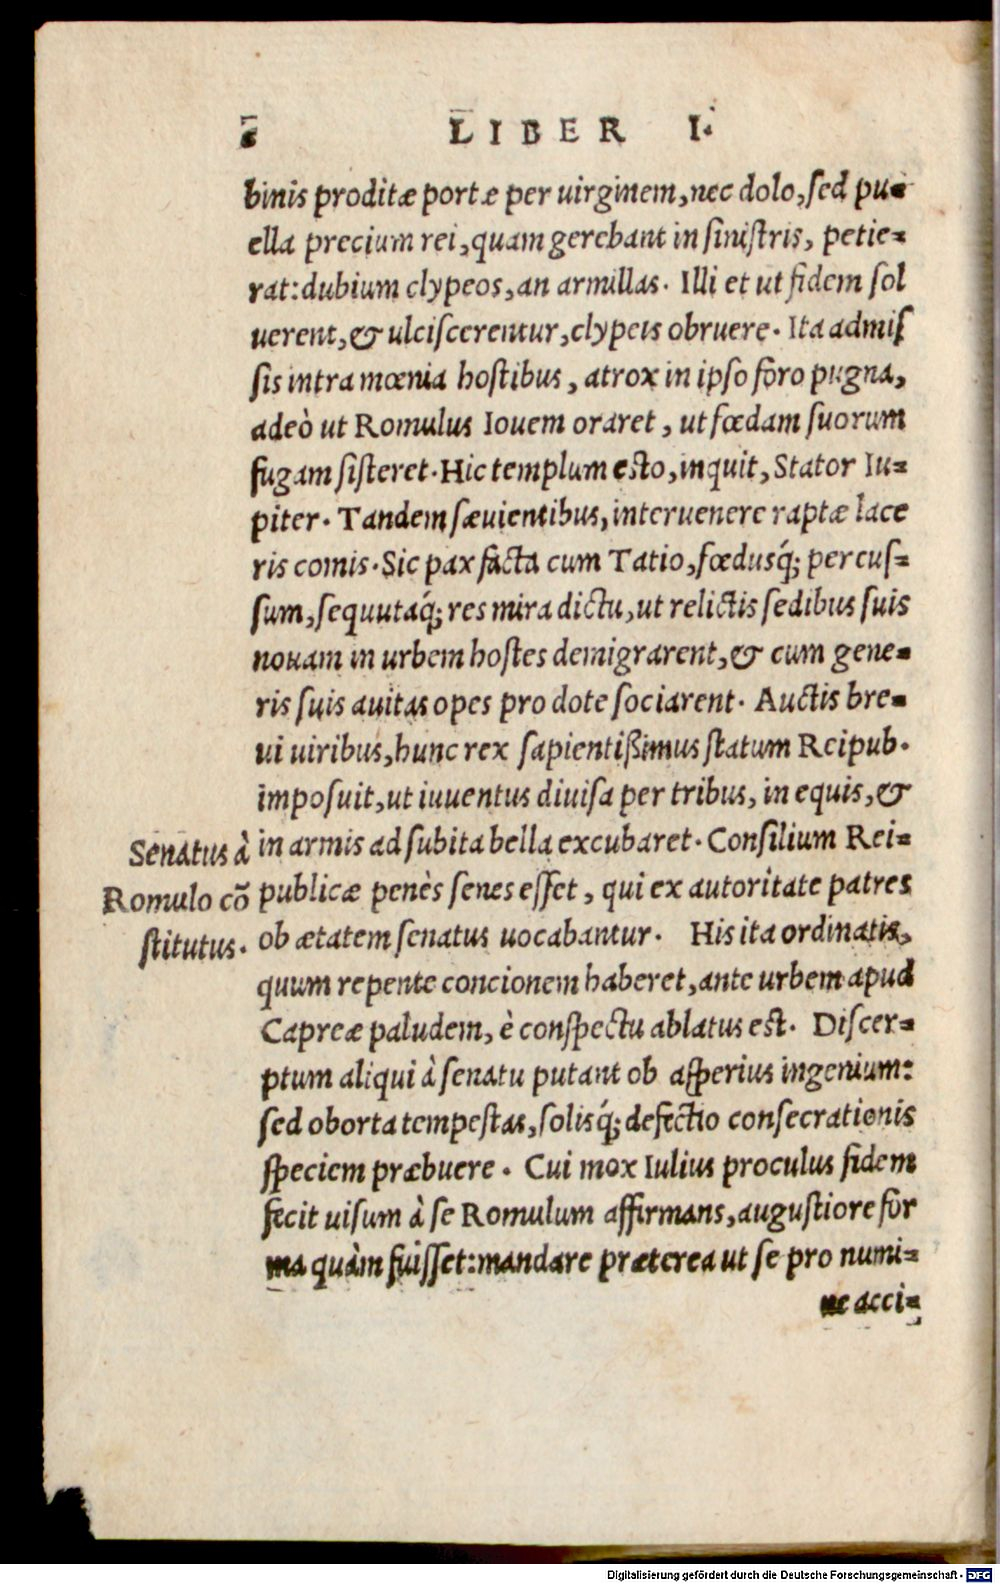 LIBER I.
binis proditæ portæ per uirginem, nec dolo, sed pu-
ella precium rei, quam gerebant in sinistris, petie-
rat: dubium clypeos, an armillas. Illi et ut fidem sol
uerent, & ulciscerentur, clypeis obruere. Ita admis
sis intra mœnia hostibus, atrox in ipso foro pugna,
adeò ut Romulus Iouem oraret, ut fœdam suorum
fugam sisteret. Hic templum esto, inquit, Stator Iu-
piter. Tandem sæuientibus, interuenere raptæ lace
ris comis. Sic pax facta cum Tatio, fœdusq́; percus-
sum, sequutaq́; res mira dictu, ut relictis sedibus suis
nouam in urbem hostes demigrarent, & cum gene-
ris suis auitas opes pro dote sociarent. Auctis bre-
ui uiribus, hunc rex sapientißimus statum Reipub.
imposuit, ut iuuentus diuisa per tribus, in equis, &
in armis ad subita bella excubaret. Consilium Rei-
publicæ penès senes esset, qui ex autoritate patres
ob ætatem senatus uocabantur. His ita ordinatis,
quum repente concionem haberet, ante urbem apud
Capreæ paludem, è conspectu ablatus est. Discer-
ptum aliqui à senatu putant ob asperius ingenium:
sed oborta tempestas, solisq́; defectio consecrationis
speciem præbuere. Cui mox Iulius proculus fidem
fecit uisum à se Romulum affirmans, augustiore for
ma quàm fuisset: mandare præterea ut se pro numi-
ne acci-
Senatus à
Romulo cõ
stitutus.
Digitalisierung gefördert durch die Deutsche Forschungsgemeinschaft - DFG